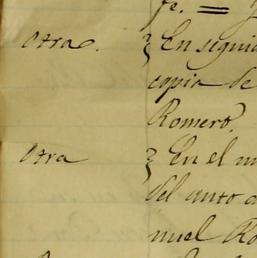 fe. =
Otra. } En seguid
copia de
Romero.
Otra } En el m
del auto a
nuel Ro